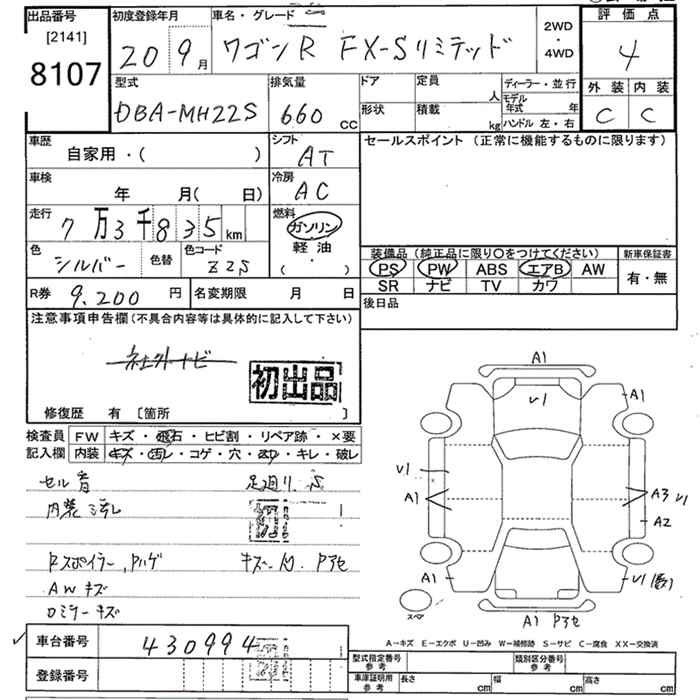 出品番号
[2141]
8107
初度登録年月
20 9月
車名・グレード
ワゴンR FX-Sリミテッド
2WD
・
4WD
評価点
4
外装 内装
C C
型式
DBA-MH22S
排気量
660 cc
ドア
形状
定員
人
積載
kg
ディーラー・並行
モデル年式 年
ハンドル 左・右
車歴
自家用・( )
シフト
AT
セールスポイント (正常に機能するものに限ります)
車検
年 月( 日)
冷房
AC
走行
7万3千835km
燃料
ガソリン
軽油
( ・ )
色
シルバー
色替
色コード
Z2S
装備品 (純正品に限り○をつけてください)
新車保証書
PS PW ABS エアB AW
SR ナビ TV カワ
有・無
R券 9,200円
名変期限 月 日
後日品
注意事項申告欄(不具合内容等は具体的に記入して下さい)
社外ナビ
初出品
修復歴 有 [箇所 ]
検査員
記入欄
FW キズ・飛石・ヒビ割・リペア跡・×要
内装 キズ・汚レ・コゲ・穴・スリ・キレ・破レ
セル音
足廻り.S
内装汚れ
初
Rスポイラー,Pハゲ
キズ-凹 Pアセ
AWキズ
ロミラーキズ
A1
V1
A1
V1
A1
A3 V1
A2
A1
V1(数)
スペア
A1 Pアセ
A-キズ E-エクボ U-凹み W-補修跡 S-サビ C-腐食 XX-交換済
車台番号
430994
登録番号
型式指定番号
参考
類別区分番号
参考
車庫証明用
参考
長さ cm
幅 cm
高さ cm